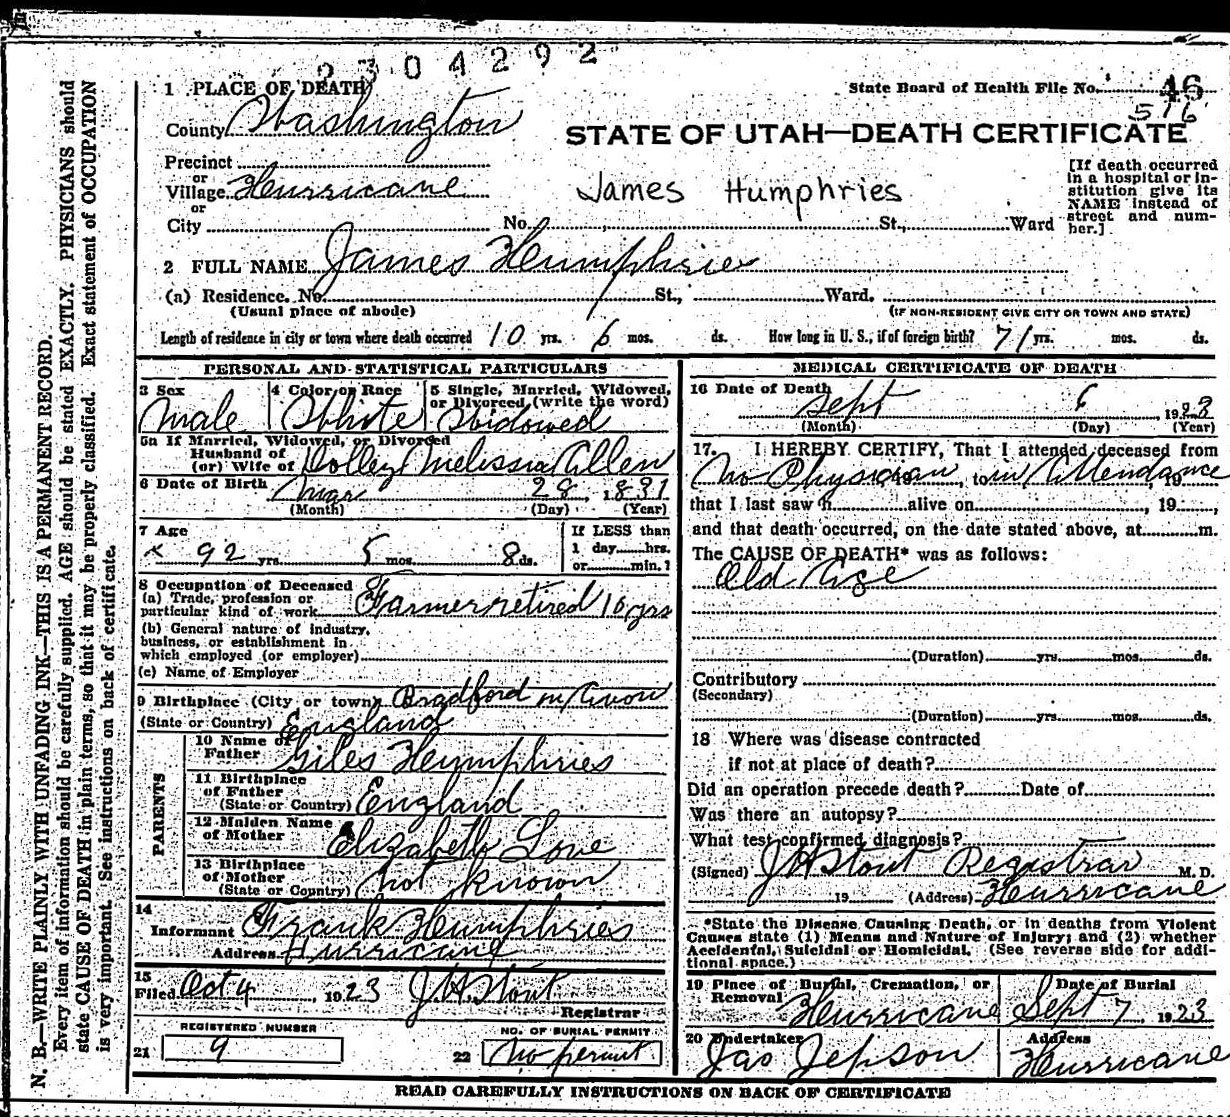 2304292
1 PLACE OF DEATH
State Board of Health File No. 46
516
County Washington
STATE OF UTAH—DEATH CERTIFICATE
Precinct
or
Village Hurricane
or
City No. St., Ward
James Humphries
[If death occurred
in a hospital or in-
stitution give its
NAME instead of
street and num-
ber.]
2 FULL NAME James Humphries
(a) Residence. No. St., Ward.
(Usual place of abode) (IF NON-RESIDENT GIVE CITY OR TOWN AND STATE)
Length of residence in city or town where death occurred 10 yrs. 6 mos. ds. How long in U. S., if of foreign birth? 71 yrs. mos. ds.
PERSONAL AND STATISTICAL PARTICULARS
3 Sex
Male
4 Color or Race
White
5 Single, Married, Widowed,
or Divorced (write the word)
Widowed
5a If Married, Widowed, or Divorced
Husband of
(or) Wife of Dolley Melissia Allen
6 Date of Birth Mar 28, 1831
(Month) (Day) (Year)
7 Age
92 yrs 5 mos. 8 ds.
If LESS than
1 day hrs.
or min.
8 Occupation of Deceased
(a) Trade, profession or
particular kind of work Farmer retired 10 yrs
(b) General nature of industry,
business, or establishment in
which employed (or employer)
(c) Name of Employer
9 Birthplace (City or town) Bradford on Avon
(State or Country) England
PARENTS
10 Name of
Father Giles Humphries
11 Birthplace
of Father
(State or Country) England
12 Maiden Name
of Mother Elizabeth Love
13 Birthplace
of Mother
(State or Country) not known
14
Informant Frank Humphries
Address Hurricane
15
Filed Oct 4, 1923 J. H. Stout
Registrar
REGISTERED NUMBER
21 9
NO. OF BURIAL PERMIT
22 No permit
MEDICAL CERTIFICATE OF DEATH
16 Date of Death
Sept 6 1923
(Month) (Day) (Year)
17. I HEREBY CERTIFY, That I attended deceased from
No Physician, 19, to in Attendance, 19
that I last saw h alive on, 19,
and that death occurred, on the date stated above, at m.
The CAUSE OF DEATH* was as follows:
Old Age
(Duration) yrs. mos. ds.
Contributory
(Secondary)
(Duration) yrs. mos. ds.
18 Where was disease contracted
if not at place of death?
Did an operation precede death? Date of
Was there an autopsy?
What test confirmed diagnosis?
(Signed) J H Stout Registrar M. D.
19 (Address) Hurricane
*State the Disease Causing Death, or in deaths from Violent
Causes state (1) Means and Nature of Injury; and (2) whether
Accidental, Suicidal or Homicidal. (See reverse side for addi-
tional space.)
19 Place of Burial, Cremation, or
Removal
Hurricane
Date of Burial
Sept 7, 1923
20 Undertaker
Jas Jepson
Address
Hurricane
READ CAREFULLY INSTRUCTIONS ON BACK OF CERTIFICATE
N. B.—WRITE PLAINLY WITH UNFADING INK—THIS IS A PERMANENT RECORD.
Every item of information should be carefully supplied. AGE should be stated EXACTLY. PHYSICIANS should
state CAUSE OF DEATH in plain terms, so that it may be properly classified. Exact statement of OCCUPATION
is very important. See instructions on back of certificate.